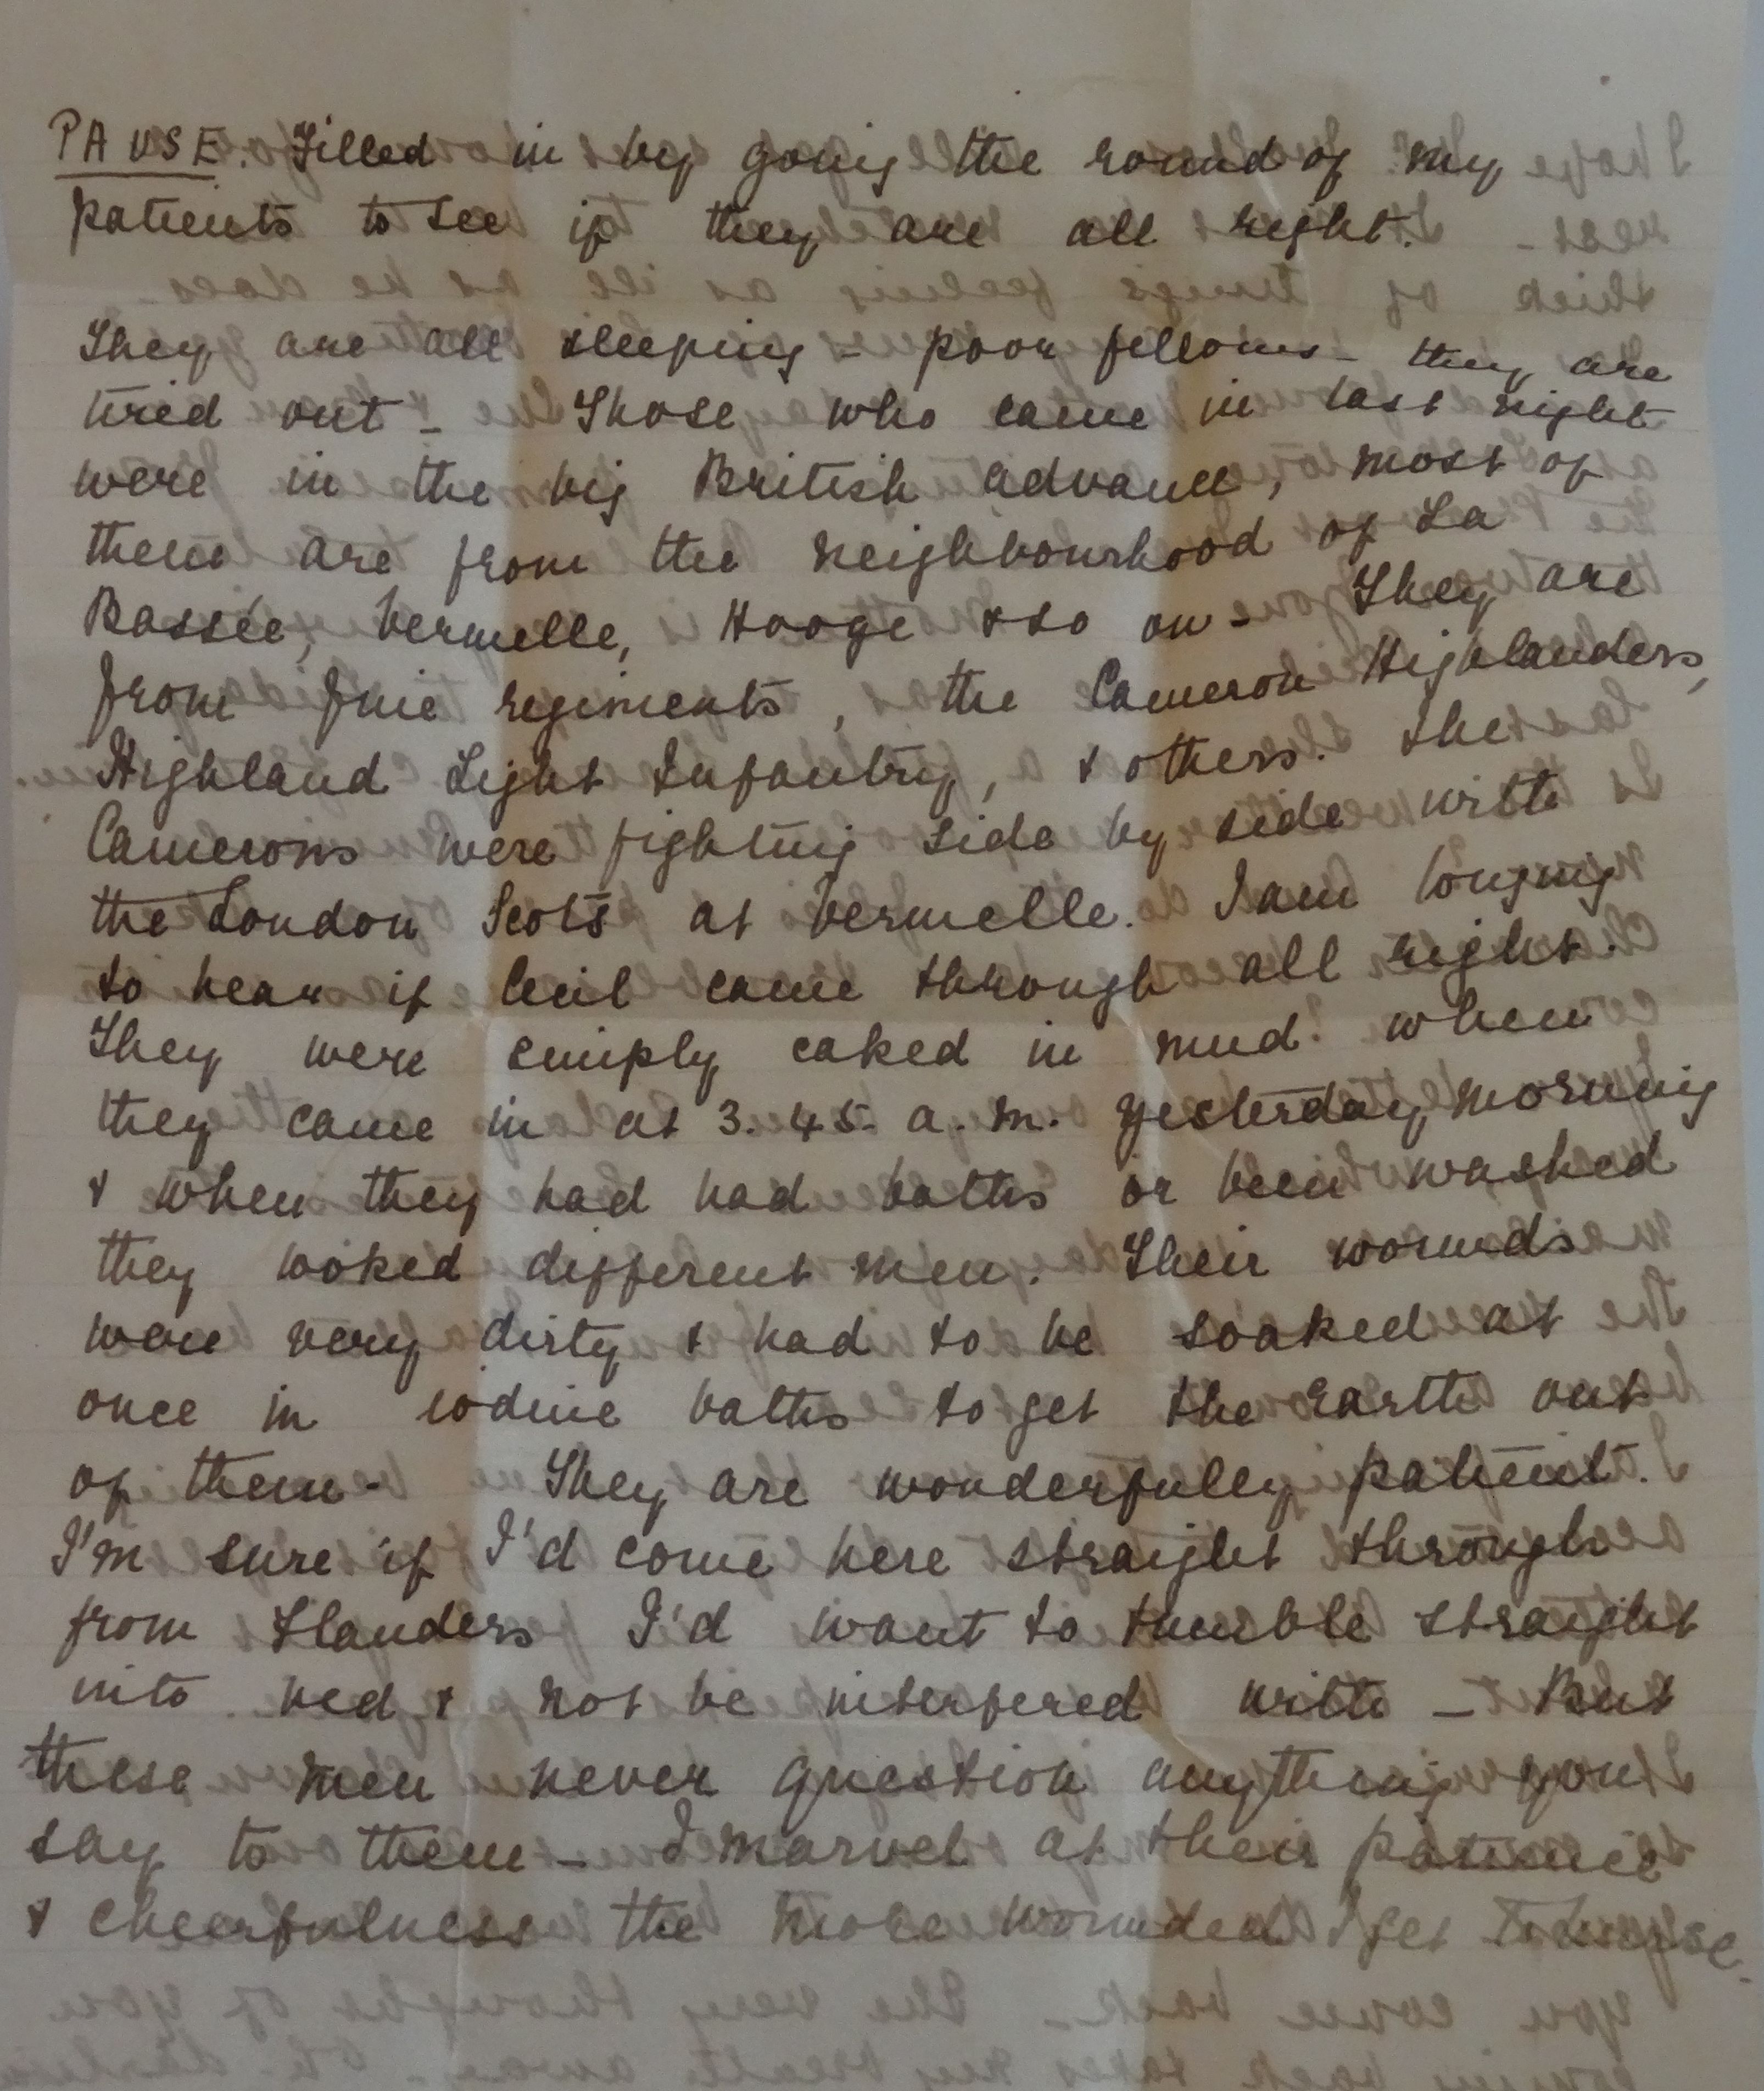 PAUSE. Filled in by going the round of my
patients to see if they are all right.
They are all sleeping - poor fellows - they are
tired out - Those who came in last night
were in the big British advance, most of
them are from the neighbourhood of La
Bassée, Vermelle, Hooge & so on - They are
from fine regiments, the Cameron Highlanders,
Highland Light Infantry, & others. The
Camerons were fighting side by side with
the London Scots at Vermelle. I am longing
to hear if Cecil came through all right.
They were simply caked in mud when
they came in at 3.45. a.m. yesterday morning
& when they had had baths or been washed
they looked different men. Their wounds
were very dirty & had to be soaked at
once in iodine baths to get the earth out
of them - They are wonderfully patient.
I'm sure if I'd come here straight through
from Flanders I'd want to tumble straight
into bed & not be interfered with - But
these men never question anything you
say to them - I marvel at their patience
& cheerfulness the more wounded I get to nurse.